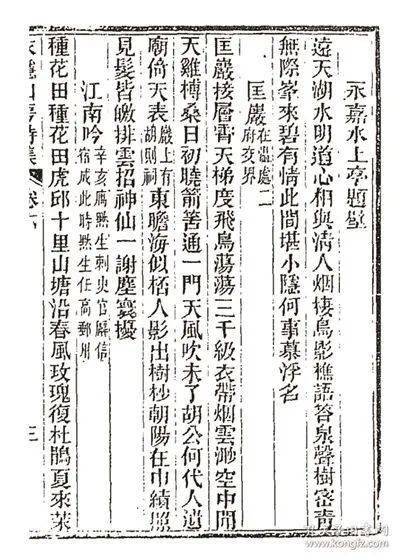 永嘉水上亭題壁
遠天湖水明道心相與清人烟棲鳥影樵語答泉聲樹密青
無際峯來碧有情此間堪小隱何事慕浮名
匡巖 在溫處二府交界
匡巖接層霄天梯度飛鳥蕩蕩三千級衣帶烟雲渺空中開
天雞搏桑日初曉箭筈通一門天風吹未了胡公何代人遺
廟倚天表 巖上有胡則祠 東瞻海似桮人影出樹杪朝陽在巾照
見髮皆皦排雲招神仙一謝塵寰擾
江南吟 辛亥黙生刺史官信宿成此時黙生任高郵州
種花田種花田虎邱十里山塘沿春風玫瑰復杜鵑夏來茉
詩集 卷
三